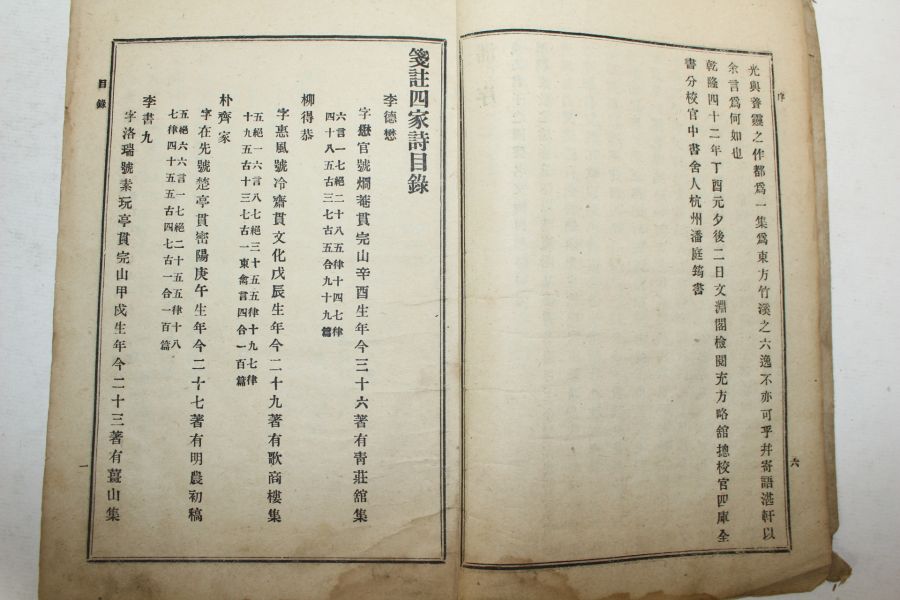 序
光與普靈之作都爲一集爲東方竹溪之六逸不亦可乎幷寄語湛軒以
余言爲何如也
乾隆四十二年丁酉元夕後二日文淵閣檢閱充方略舘摠校官四庫全
書分校官中書舍人杭州潘庭筠書
六
箋註四家詩目錄
李德懋
字懋官號烱菴貫完山辛酉生年今三十六著有靑莊舘集
六言一七絕二十八五律十四七律
四十八五古三七古五合九十九篇
柳得恭
字惠風號冷齋貫文化戊辰生年今二十九著有歌商樓集
五絕一六言八七絕三十五五律十九七律
十九五古十三七古一東禽言四合一百篇
朴齊家
字在先號楚亭貫密陽庚午生年今二十七著有明農初稿
五絕六六言一七絕二十五五律十八
七律四十五五古四七古一合一百篇
李書九
字洛瑞號素玩亭貫完山甲戌生年今二十三著有薑山集
目錄
一